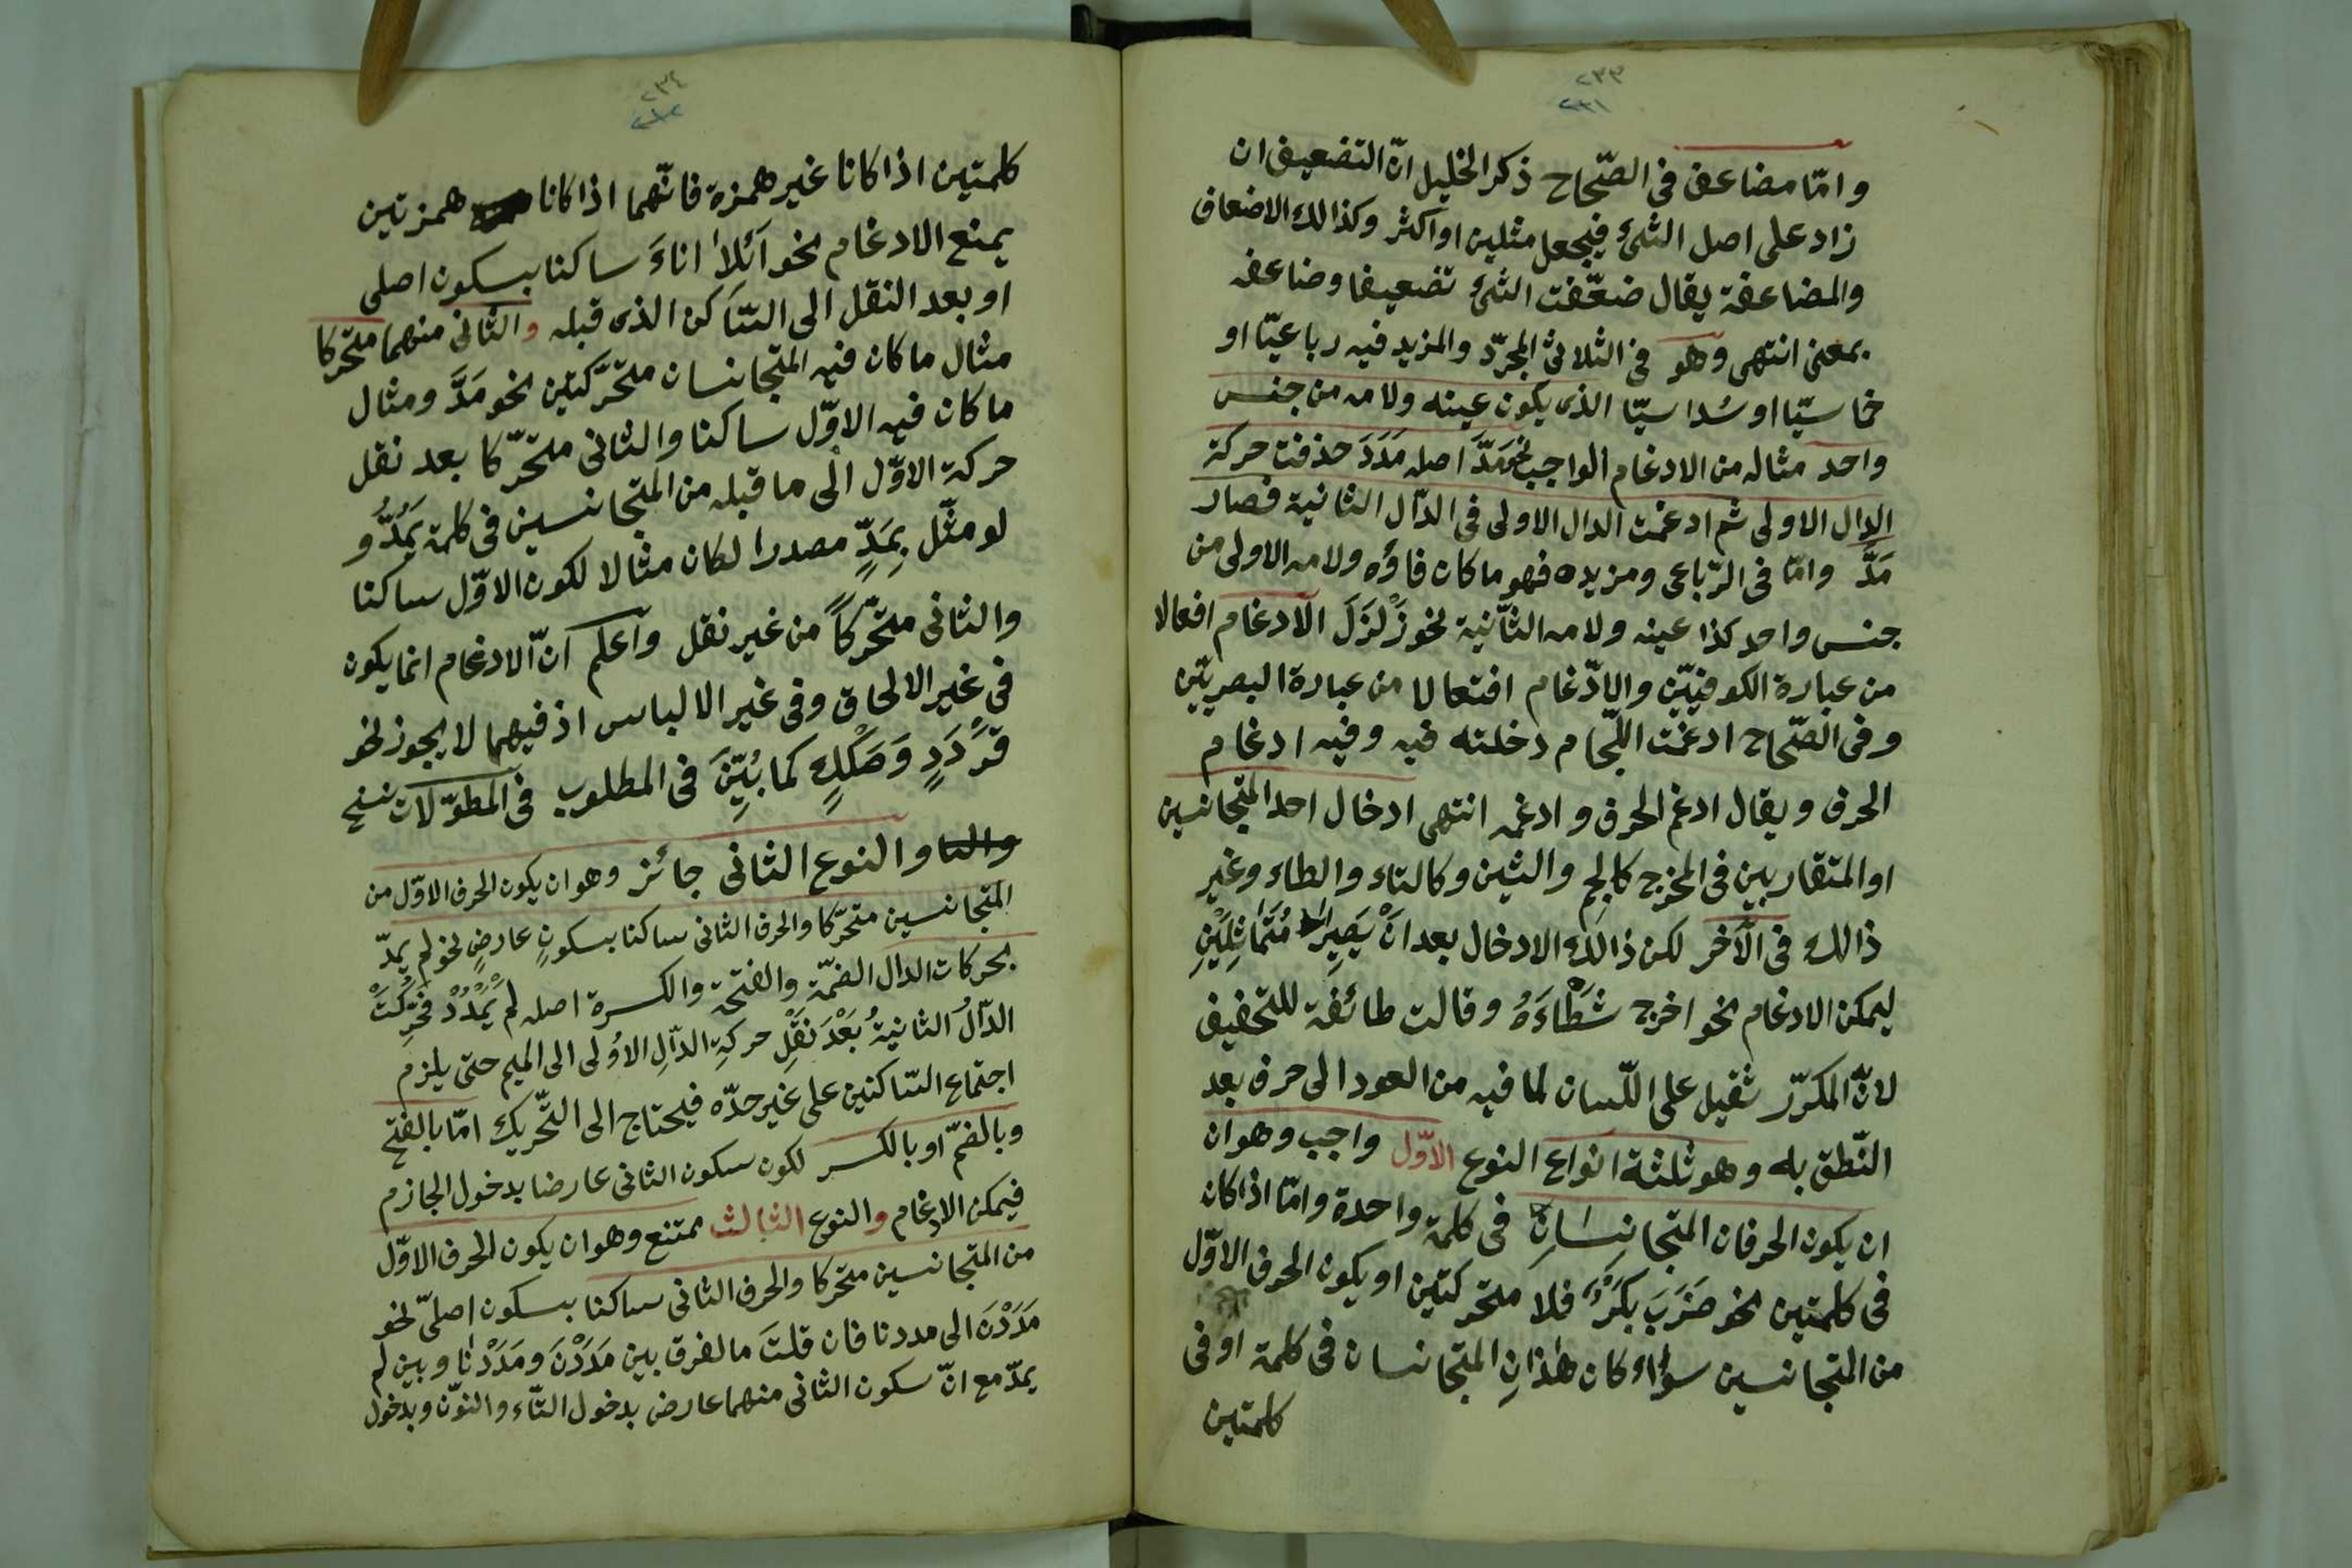 ٢٣٣
٢٣١
وامّا مضاعف فى الصّحاح ذكر الخليل انّ التضعيف ان
زاد على اصل الشئ فيجعل مثلين او اكثر وكذالك الاضعاف
والمضاعفة يقال ضعّفت الشئ تضعيفا وضاعفه
بمعنى انتهى وهو فى الثلاثى المجرّد والمزيد فيه رباعيّا او
خماسيّا او سُداسيّا الذى يكون عينه ولامه من جنس
واحد مثاله من الادغام الواجب نحو مَدَّ اصله مَدَدَ حذفت حركة
الدال الاولى ثم ادغمت الدال الاولى فى الدّال الثانية فصار
مَدَّ وامّا فى الرّباعى ومزيده فهو ما كان فاؤه ولامه الاولى من
جنس واحد كذا عينه ولامه الثّانية نحو زَلْزَلَ الادغام افعالا
من عبارة الكوفييّن والادّغام افتعالا من عبارة البصرييّن
وفى الصّحاح ادغمت اللّجام دخلته فيه وفيه ادغام
الحرف ويقال ادغم الحرف وادغمه انتهى ادخال احد المتجانسين
او المتقاربين فى المخرج كالجيم والشين وكالتاء والطاء وغير
ذالك فى الآخر لكن ذالك الادخال بعد انْ يَصِيرا مُتَمَاثِلَيْنِ
ليمكن الادغام نحو اخرج شَطْاءَهُ وقالت طائفة للتخفيف
لانّ المكرّر ثقيل على اللّسان لما فيه من العود الى حرف بعد
النّطق به وهو ثلثة انواع النوع الاوّل واجب وهو ان
ان يكون الحرفان المتجانِسَانِ فى كلمة واحدة وامّا اذا كان
فى كلمتين نحو ضَرَبَ بَكْرٌ فلا متحركتين او يكون الحرف الاوّل
من المتجانسين سوٰاء كان هٰذانِ المتجانسان فى كلمة او فى
كلمتين
٢٣٤
٢٣٢
كلمتين اذا كانا غير همزة فانّهما اذا كانا همزتين
يمنع الادغام نحو آئلاً اناءَ ساكنا بسكون اصلى
او بعد النقل الى السّاكن الذى قبله والثانى منهما متحركا
مثال ما كان فيه المتجانسان متحرّكتين نحو مَدَّ ومثال
ما كان فيه الاوّل ساكنا والثانى متحرّكا بعد نقل
حركة الاوّل الى ما قبله من المتجانسين فى كلمة يَمُدُّ و
لو مثّل بِمَدٍّ مصدرا لكان مثالا لكون الاوّل ساكنا
والثانى متحرّكاً من غير نقل واعلم انّ الادغام انما يكون
فى غير الالحاق وفى غير الالباس اذ فيهما لا يجوز نحو
قَرْدَدٍ وَصَكَكٍ كما بُيِّنَ فى المطلوب فى المطوّلات نسخ
والنا والنوع الثانى جائز وهو ان يكون الحرف الاوّل من
المتجانسين متحرّكا والحرف الثانى ساكنا بسكونٍ عارضٍ نحو لم يمدّ
بحركات الدال الضمّة والفتحة والكسرة اصله لم يَمْدُدْ فحُرِّكَتْ
الدّالُ الثانيةُ بَعْدَ نَقْلِ حركةِ الدّالِ الاُولى الى الميم حتى يلزم
اجتماع السّاكنين على غير حدّه فيحتاج الى التّحريك امّا بالفتح
وبالضمّ او بالكسر لكون سكون الثانى عارضا بدخول الجازم
فيمكن الادغام والنوع الثالث ممتنع وهو ان يكون الحرف الاوّل
من المتجانسين متحركا والحرف الثانى ساكنا بسكون اصلىّ نحو
مَدَدْنَ الى مددنا فان قلتَ مالفرق بين مَدَدْنَ ومَدَدْنٰا وبين لم
يمدّ مع انّ سكون الثانى منهما عارض بدخول التّاء والنوّن وبدخول